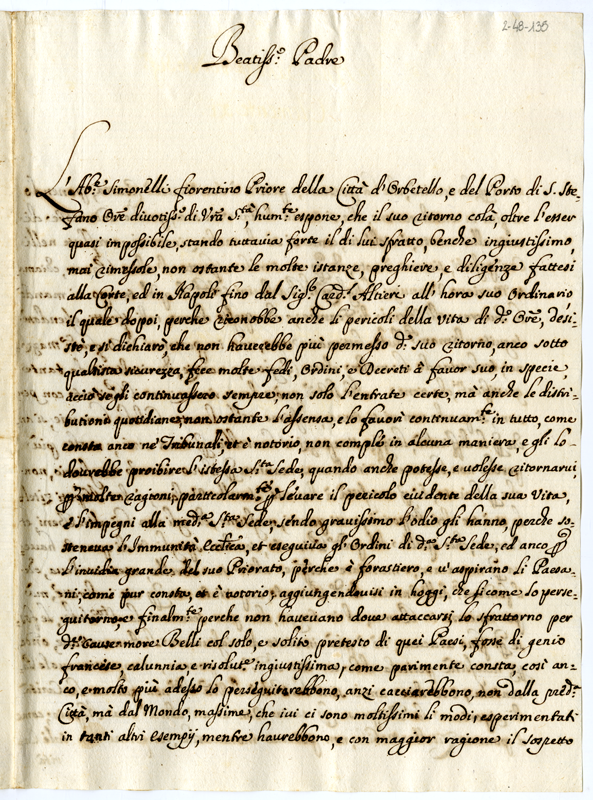 2-48-135
Beatiss.o Padre
L'Ab.e Simonelli fiorentino Priore della Città d'Orbetello, e del Porto di S. Ste-
fano Ore divotiss.o di Vrã S.tà, hum.te espone, che il suo ritorno colà, oltre l'esser
quasi impossibile, stando tuttavia forte il di lui sfratto, benche ingiustissimo,
mai rimessole, non ostante le molte istanze, preghiere, e diligenze fattesi
alla Corte, ed in Napoli fino dal Sig.r Card.l Altieri all'hora suo Ordinario
il quale doppoi, perche riconobbe anche li pericoli della vita di d.o Ore, desi-
stè, e si dichiarò, che non haverebbe più permesso d.o suo ritorno, anco sotto
qualsisia sicurezza, fece molte fedi, Ordini, e Decreti à favor suo, in specie,
acciò segli continuassero sempre, non solo l'entrate certe, mà anche le distri-
butioni quotidiane, non ostante l'assenza, e lo favorì continuam.te in tutto, come
consta anco ne' Tribunali, et è notorio, non complè in alcuna maniera, e gli lo
dovrebbe proibire l'istessa S.ta Sede, quando anche potesse, e volesse ritornarvi,
p molte cagioni, particolarm.te p levare il pericolo evidente della sua Vita,
e l'impegni alla med.a S.ta Sede, sendo gravissimo l'odio gli hanno, perche so-
steneva l'Immunità Eccl.ca, et eseguiva gl'Ordini di d.a S.ta Sede, ed anco p
l'invidia grande del suo Priorato, perche è forastiero, e v'aspirano li Paesa-
ni, come pur consta, et è notorio, aggiungendovisi in hoggi, che sicome lo perse-
guitorno, e finalm.te perche non havevano dove attaccarsi, lo sfrattorno per
d.o Cause more Belli col solo, e solito pretesto di quei Paesi, fosse di genio
francese, calunnia e risolut.e ingiustissima, come parimente consta, così an-
co, e molto più adesso lo perseguitarebbono, anzi cacciarebbono, non dalla pred.a
Città, mà dal Mondo, massime, che ivi ci sono moltissimi li modi, esperimentati
in tanti altri esempij, mentre haurebbono, e con maggior ragione il sospetto